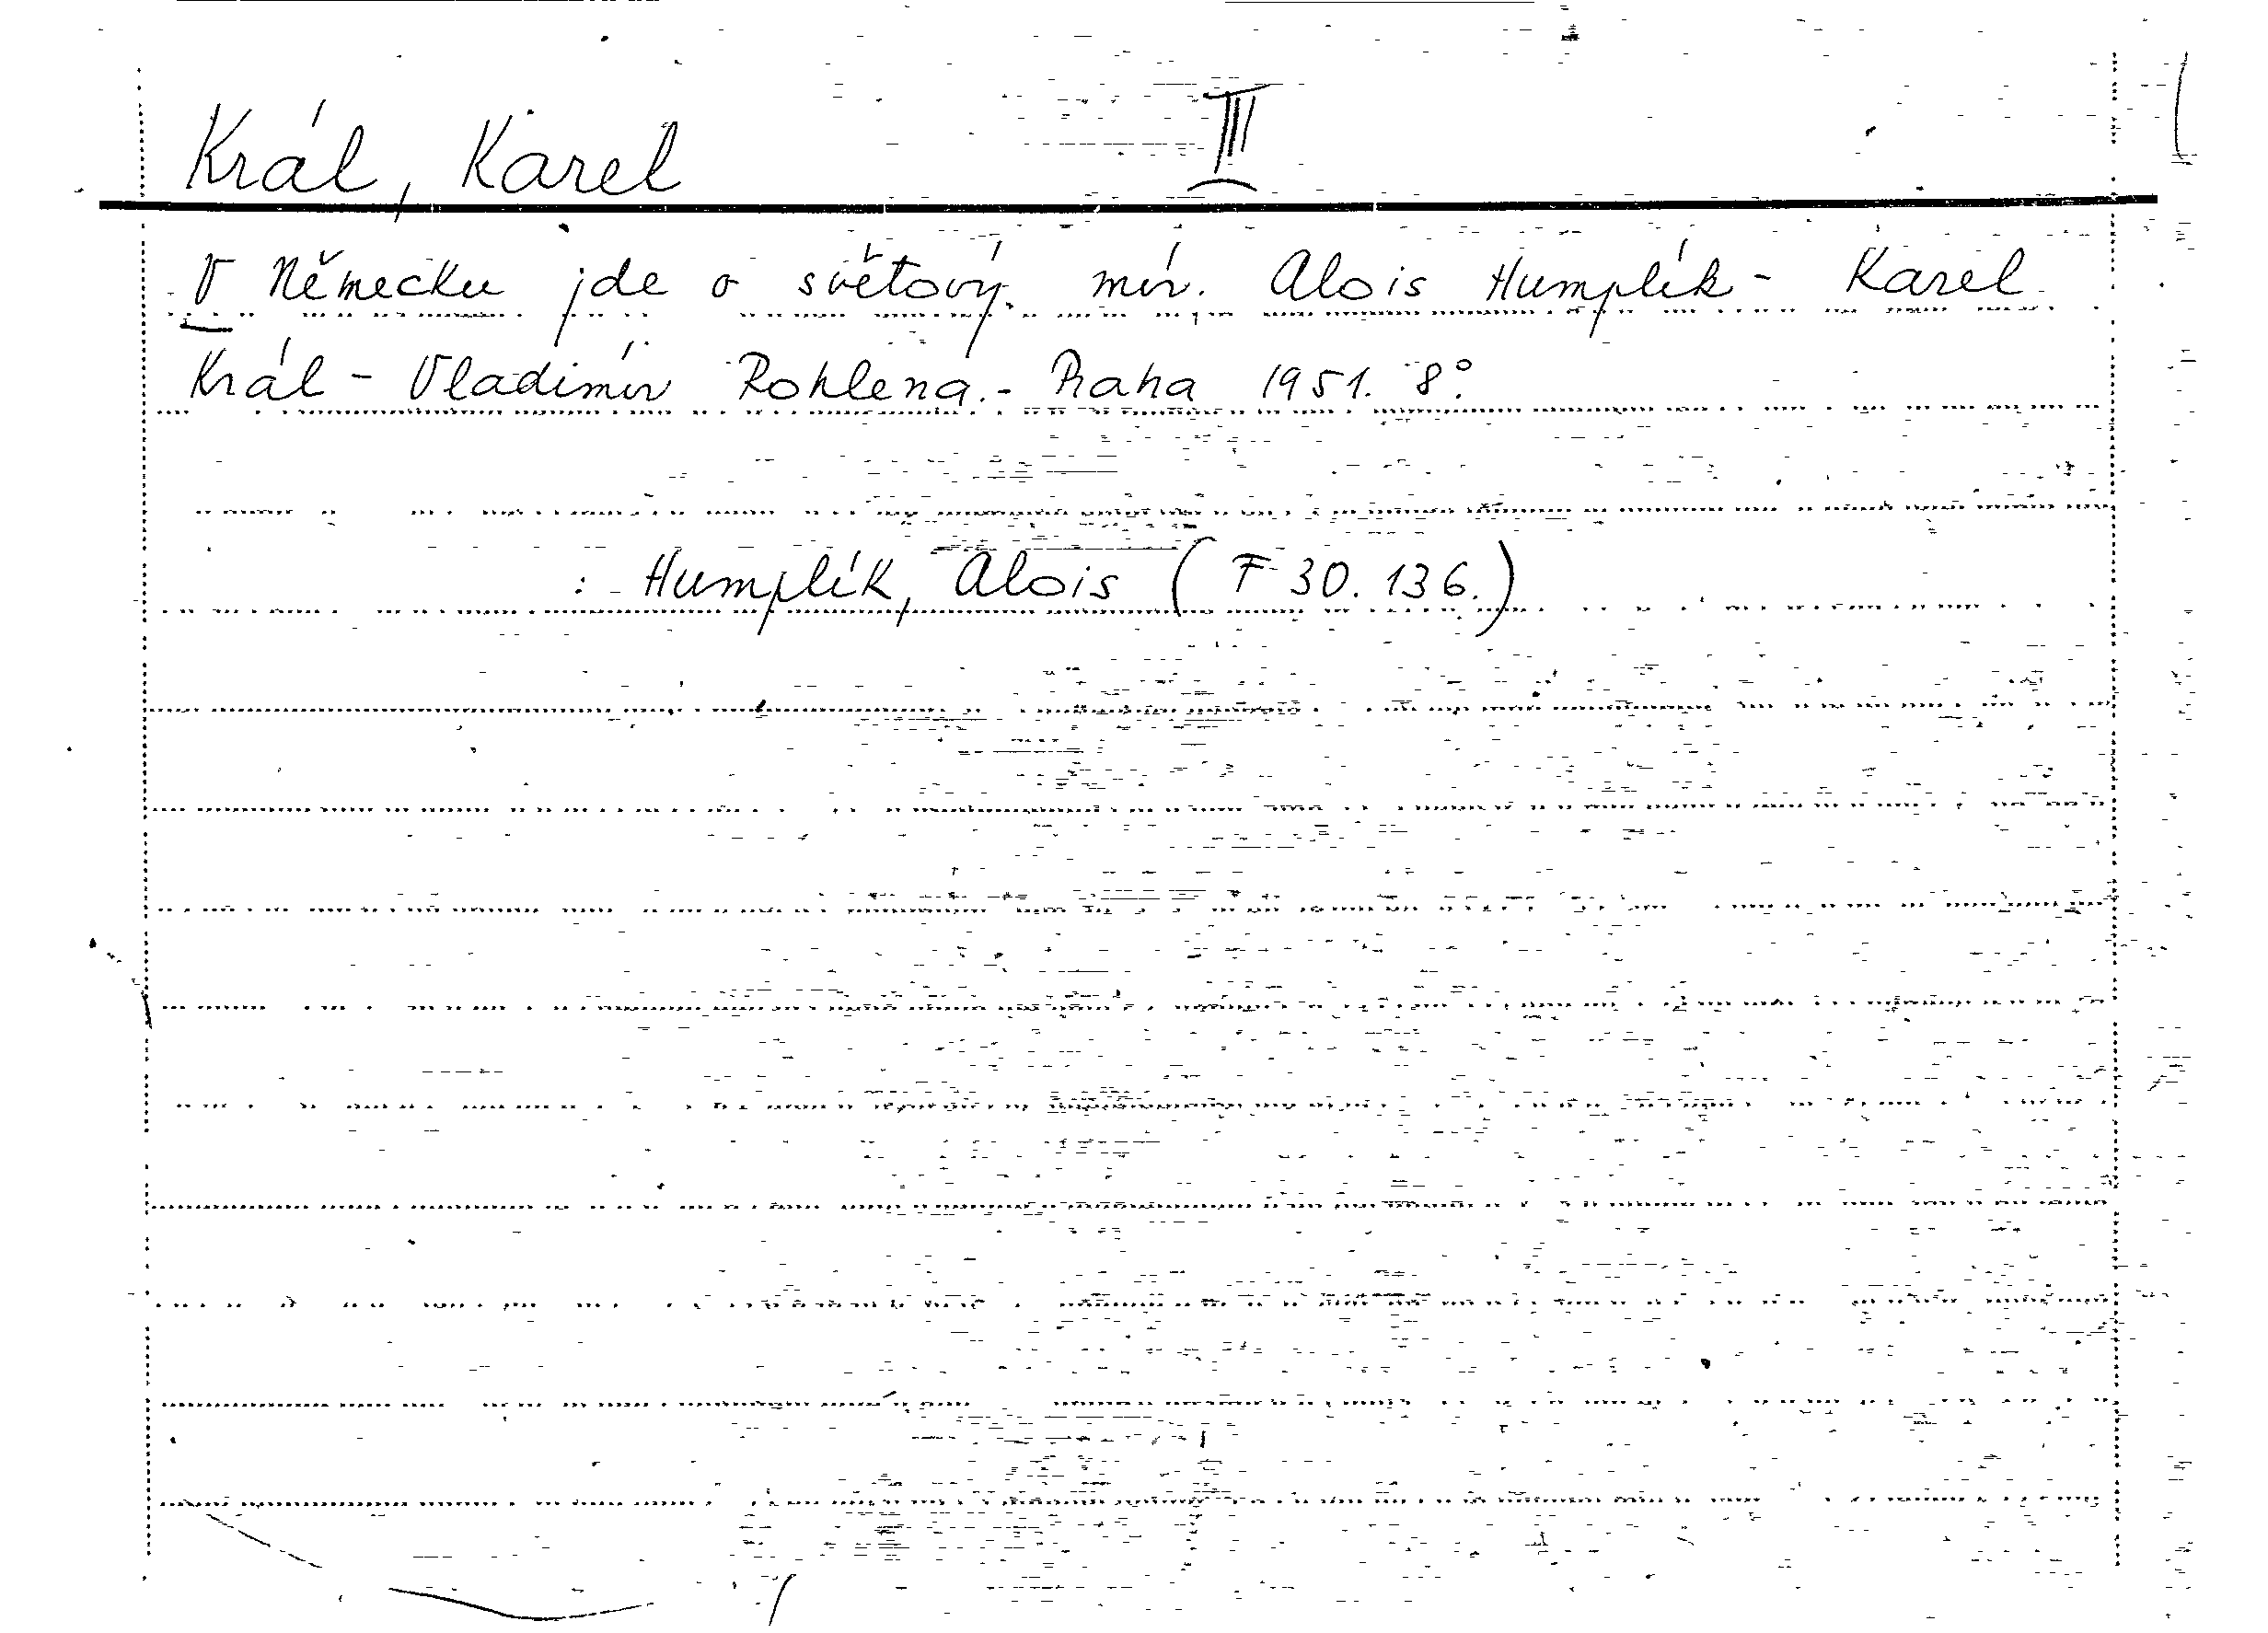 Král, Karel III
V Německu jde o světový mír. Alois Humplík - Karel
Král - Vladimír Rohlena. - Praha 1951. 8°.
: Humplík, Alois (F 30.136.)